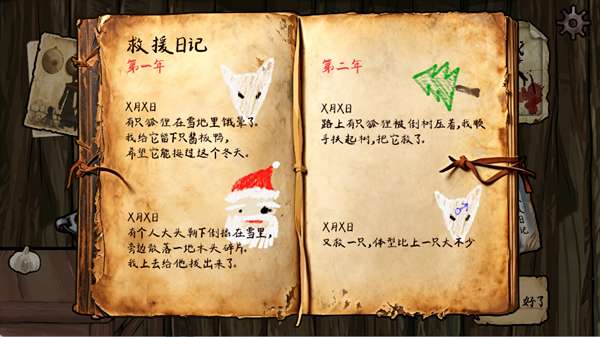 救援日记
第一年
X月X日
有只狐狸在雪地里饿晕了。
我给它留下只酱板鸭，
希望它能挺过这个冬天。
X月X日
有个人大头朝下倒插在雪里，
旁边散落一地木头碎片。
我上去给他拔出来了。
第二年
X月X日
路上有只狐狸被倒树压着，我顺
手扶起树，把它救了。
X月X日
又救一只，体型比上一只大不少
好了